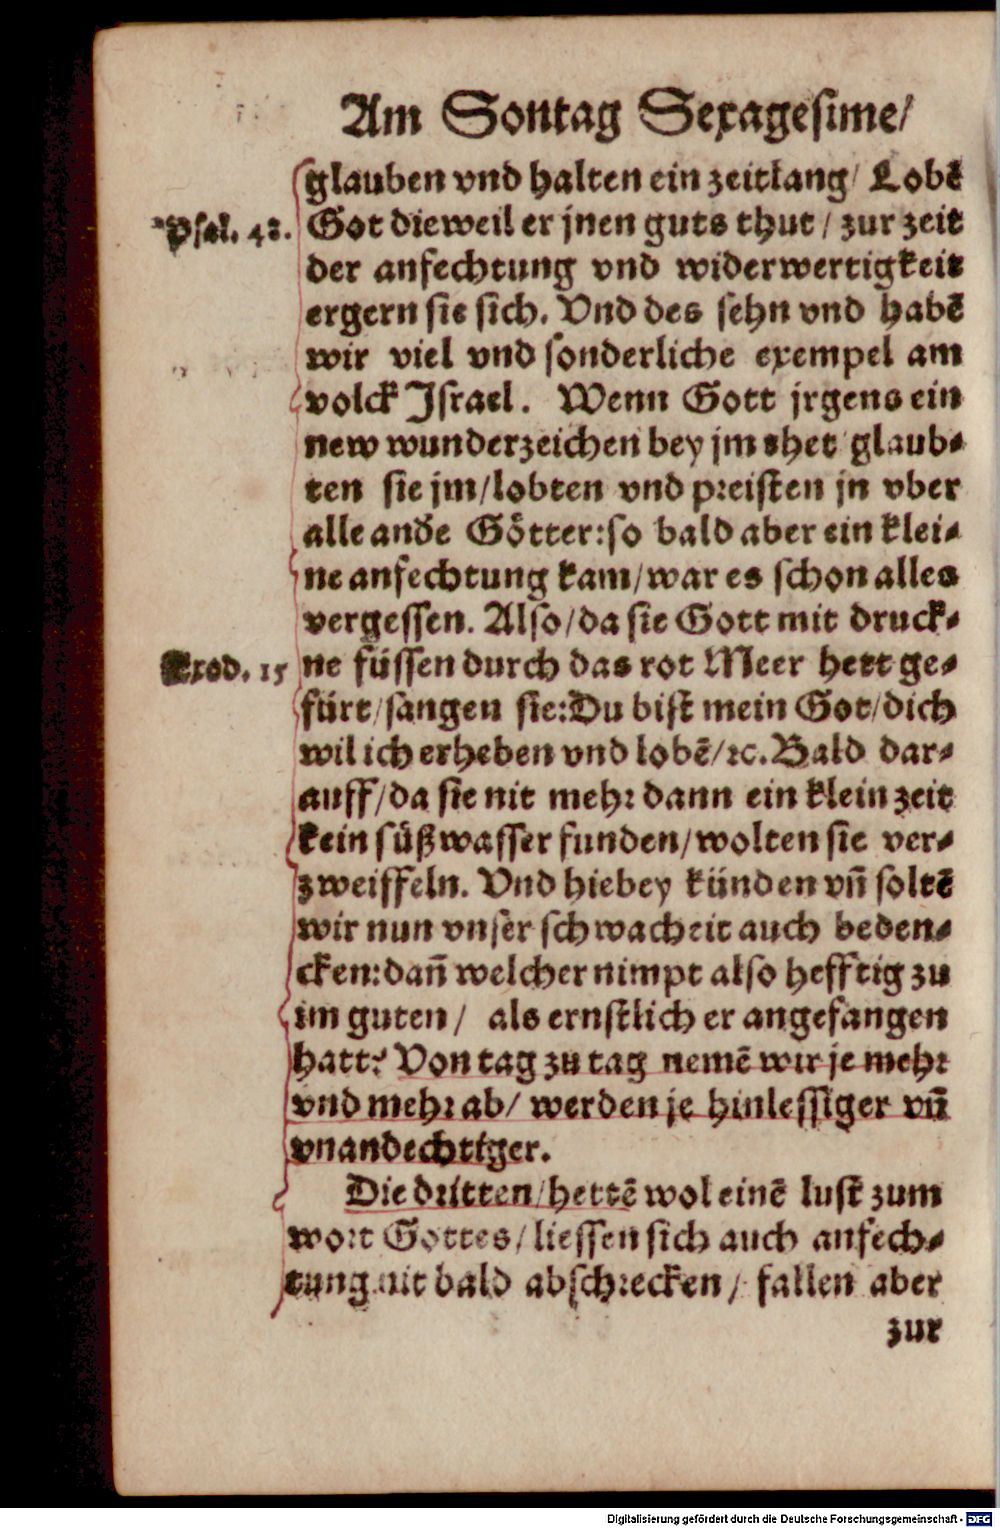 Am Sontag Sexagesime/
glauben vnd halten ein zeitlang/ Lobē
Psal. 48. Got dieweil er jnen guts thut / zur zeit
der anfechtung vnd widerwertigkeit
ergern sie sich. Vnd des sehn vnd habē
wir viel vnd sonderliche exempel am
volck Israel. Wenn Gott jrgens ein
new wunderzeichen bey jm thet glaub-
ten sie jm/lobten vnd preisten jn vber
alle andꝛe Götter:so bald aber ein klei-
ne anfechtung kam/war es schon alles
vergessen. Also/da sie Gott mit druck-
Exod. 15 ne füssen durch das rot Meer hett ge-
fürt/sangen sie:Du bist mein Got/dich
wil ich erheben vnd lobē/ꝛc. Bald dar-
auff/da sie nit mehr dann ein klein zeit
kein süß wasser funden/wolten sie ver-
zweiffeln. Vnd hiebey künden vn̄ soltē
wir nun vnser schwacheit auch beden-
cken:dan̄ welcher nimpt also hefftig zu
im guten/ als ernstlich er angefangen
hatt? Von tag zu tag nemē wir je mehr
vnd mehr ab/ werden je hinlessiger vn̄
vnandechtiger.
Die dritten/hettē wol einē lust zum
wort Gottes/liessen sich auch anfech-
tung nit bald abschrecken/ fallen aber
zur
Digitalisierung gefördert durch die Deutsche Forschungsgemeinschaft - DFG